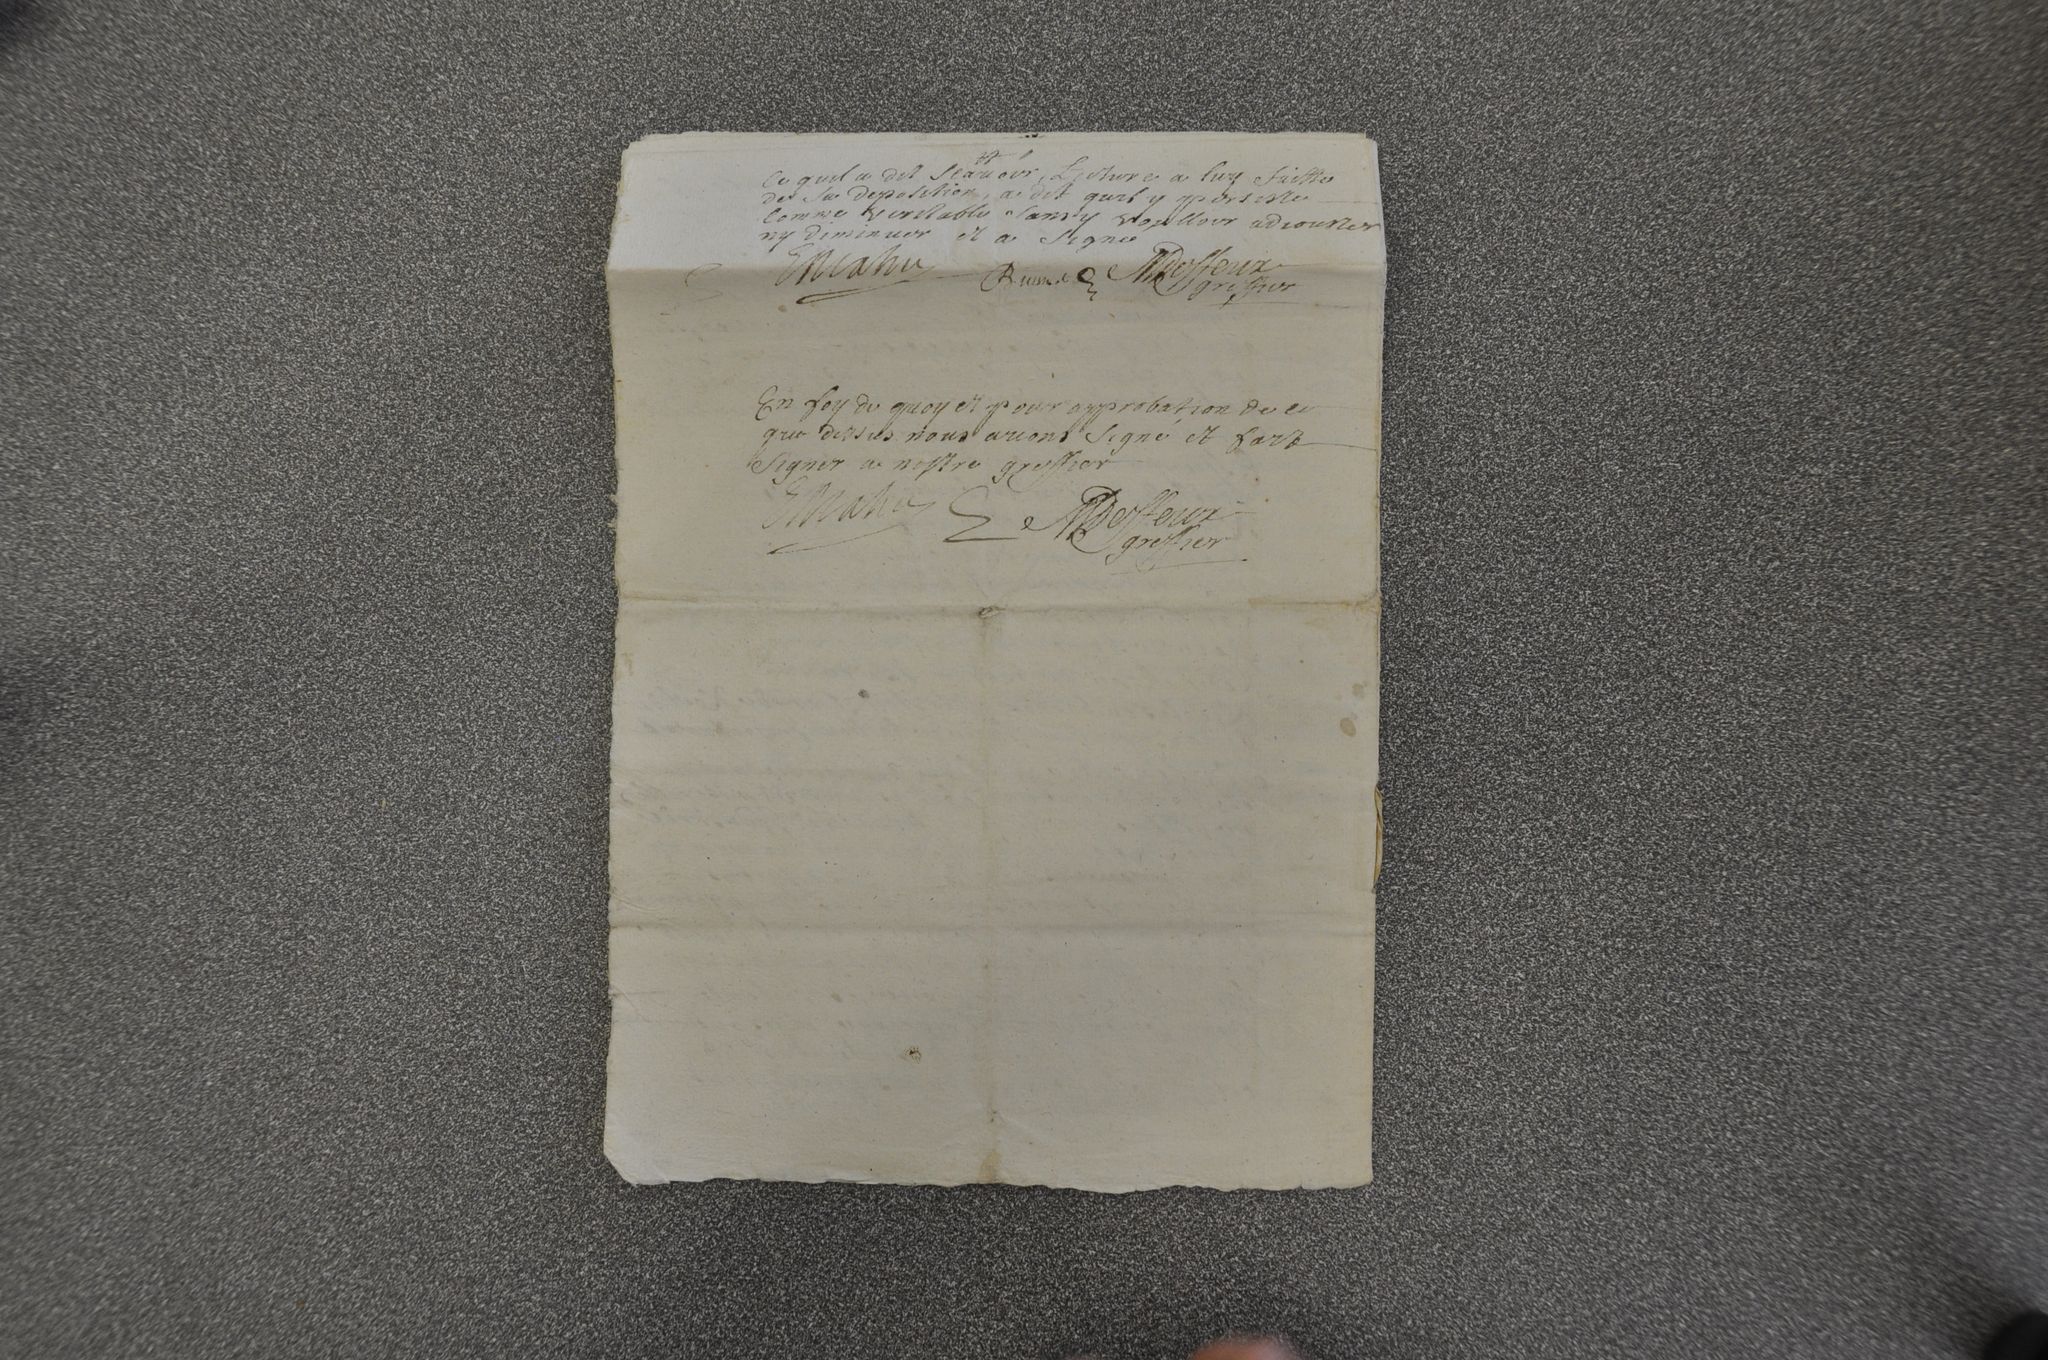 ce quil a dit scavoir, Lecture a luy faitte
de sa deposition, a dit quil y persiste
comme veritable sans y voulloir adiouster
ny diminuer et a signé
EMahu Rume MDesfeux
greffier
En foy de quoy et pour approbation de ce
que dessus nous avons signé et fait
signer a nostre greffier
EMahu MDesfeux
greffier